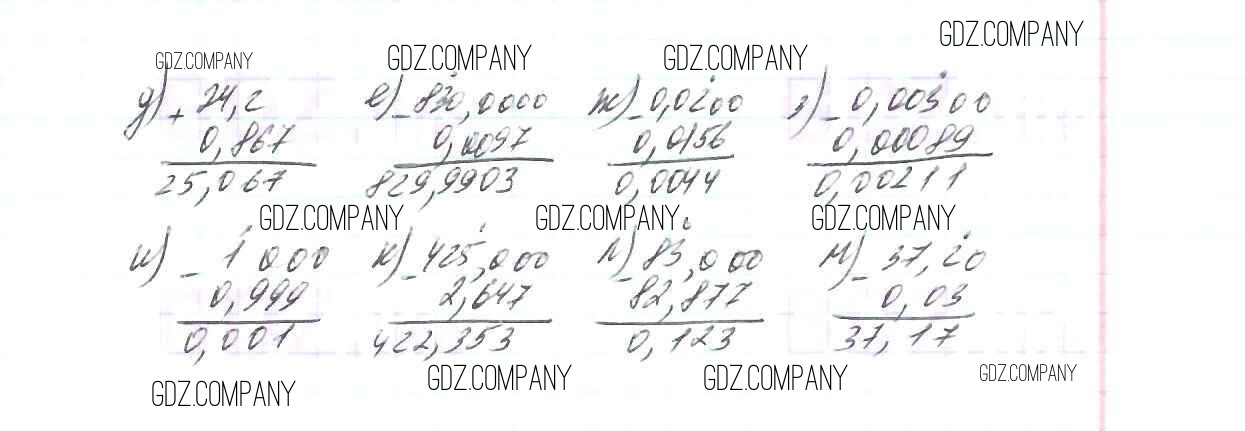 GDZ.COMPANY
GDZ.COMPANY GDZ.COMPANY GDZ.COMPANY
д) + 24,2 е) - 830,0000 ж) - 0,0200 з) - 0,00300
0,867 0,0097 0,0156 0,00089
25,067 829,9903 0,0044 0,00211
GDZ.COMPANY GDZ.COMPANY GDZ.COMPANY
и) - 1 000 к) - 425,000 л) - 83,000 м) - 37,20
0,999 2,647 82,877 0,03
0,001 422,353 0,123 37,17
GDZ.COMPANY GDZ.COMPANY GDZ.COMPANY GDZ.COMPANY